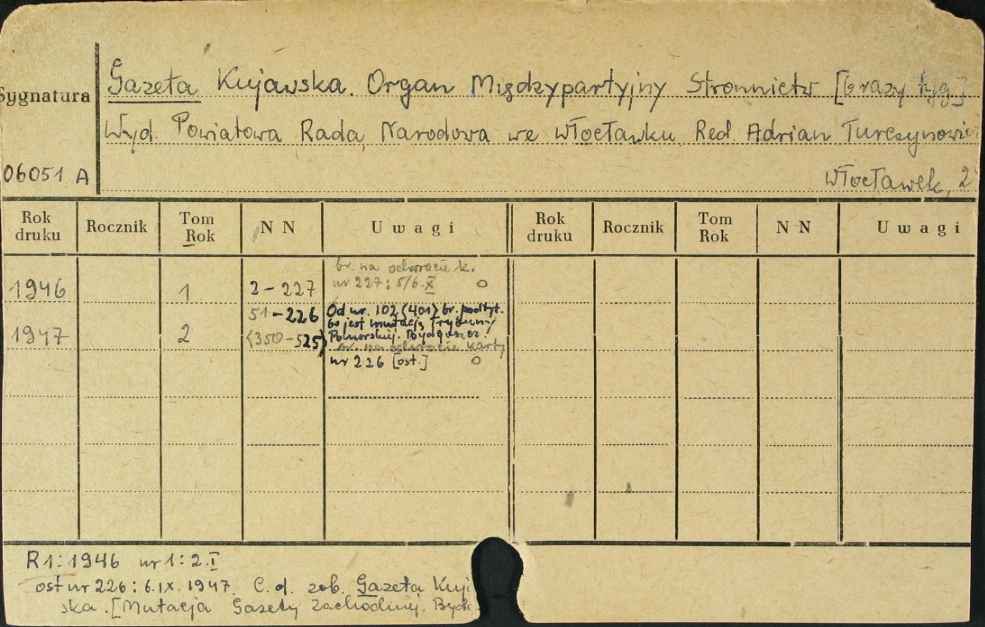 Gazeta Kujawska. Organ Międzypartyjny Stronnictw [6 razy tyg.]
Sygnatura
Wyd. Powiatowa Rada Narodowa we Włocławku. Red. Adrian Turczynowic
06051 A
Włocławek, 2
Rok druku Rocznik Tom Rok NN Uwagi Rok druku Rocznik Tom Rok NN Uwagi
br. na odwrocie k.
1946 1 2-227 nr 227: 5/6.X o
51-226 Od nr. 102 (401) br. podtyt.
bo jest mutacją Trybuny
1947 2 (350-525) Pomorskiej. Bydgoszcz!
br. na odwrocie karty
nr 226 [ost.] o
R1: 1946 nr 1: 2.I
ost nr 226: 6.IX.1947. C.d. zob. Gazeta Kuj
ska. [Mutacja Gazety Zachodniej. Byd